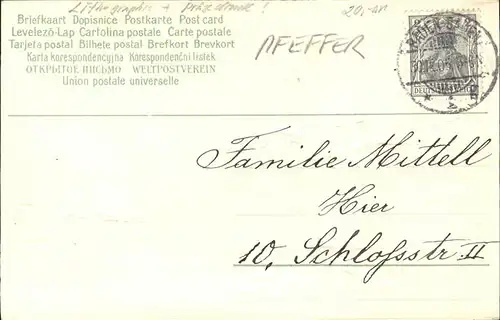 Lithographie + Prägedruck!
20,-
PFEFFER
Briefkaart Dopisnice Postkarte Post card
Levelező-Lap Cartolina postale Carte postale
Tarjeta postal Bilhete postal Brefkort Brevkort
Karta korespondencyjna Korespondenční lístek
ОТКРЫТОЕ ПИСЬМО WELTPOSTVEREIN
Union postale universelle
Familie Mittell
Hier
10, Schlofsstr. II